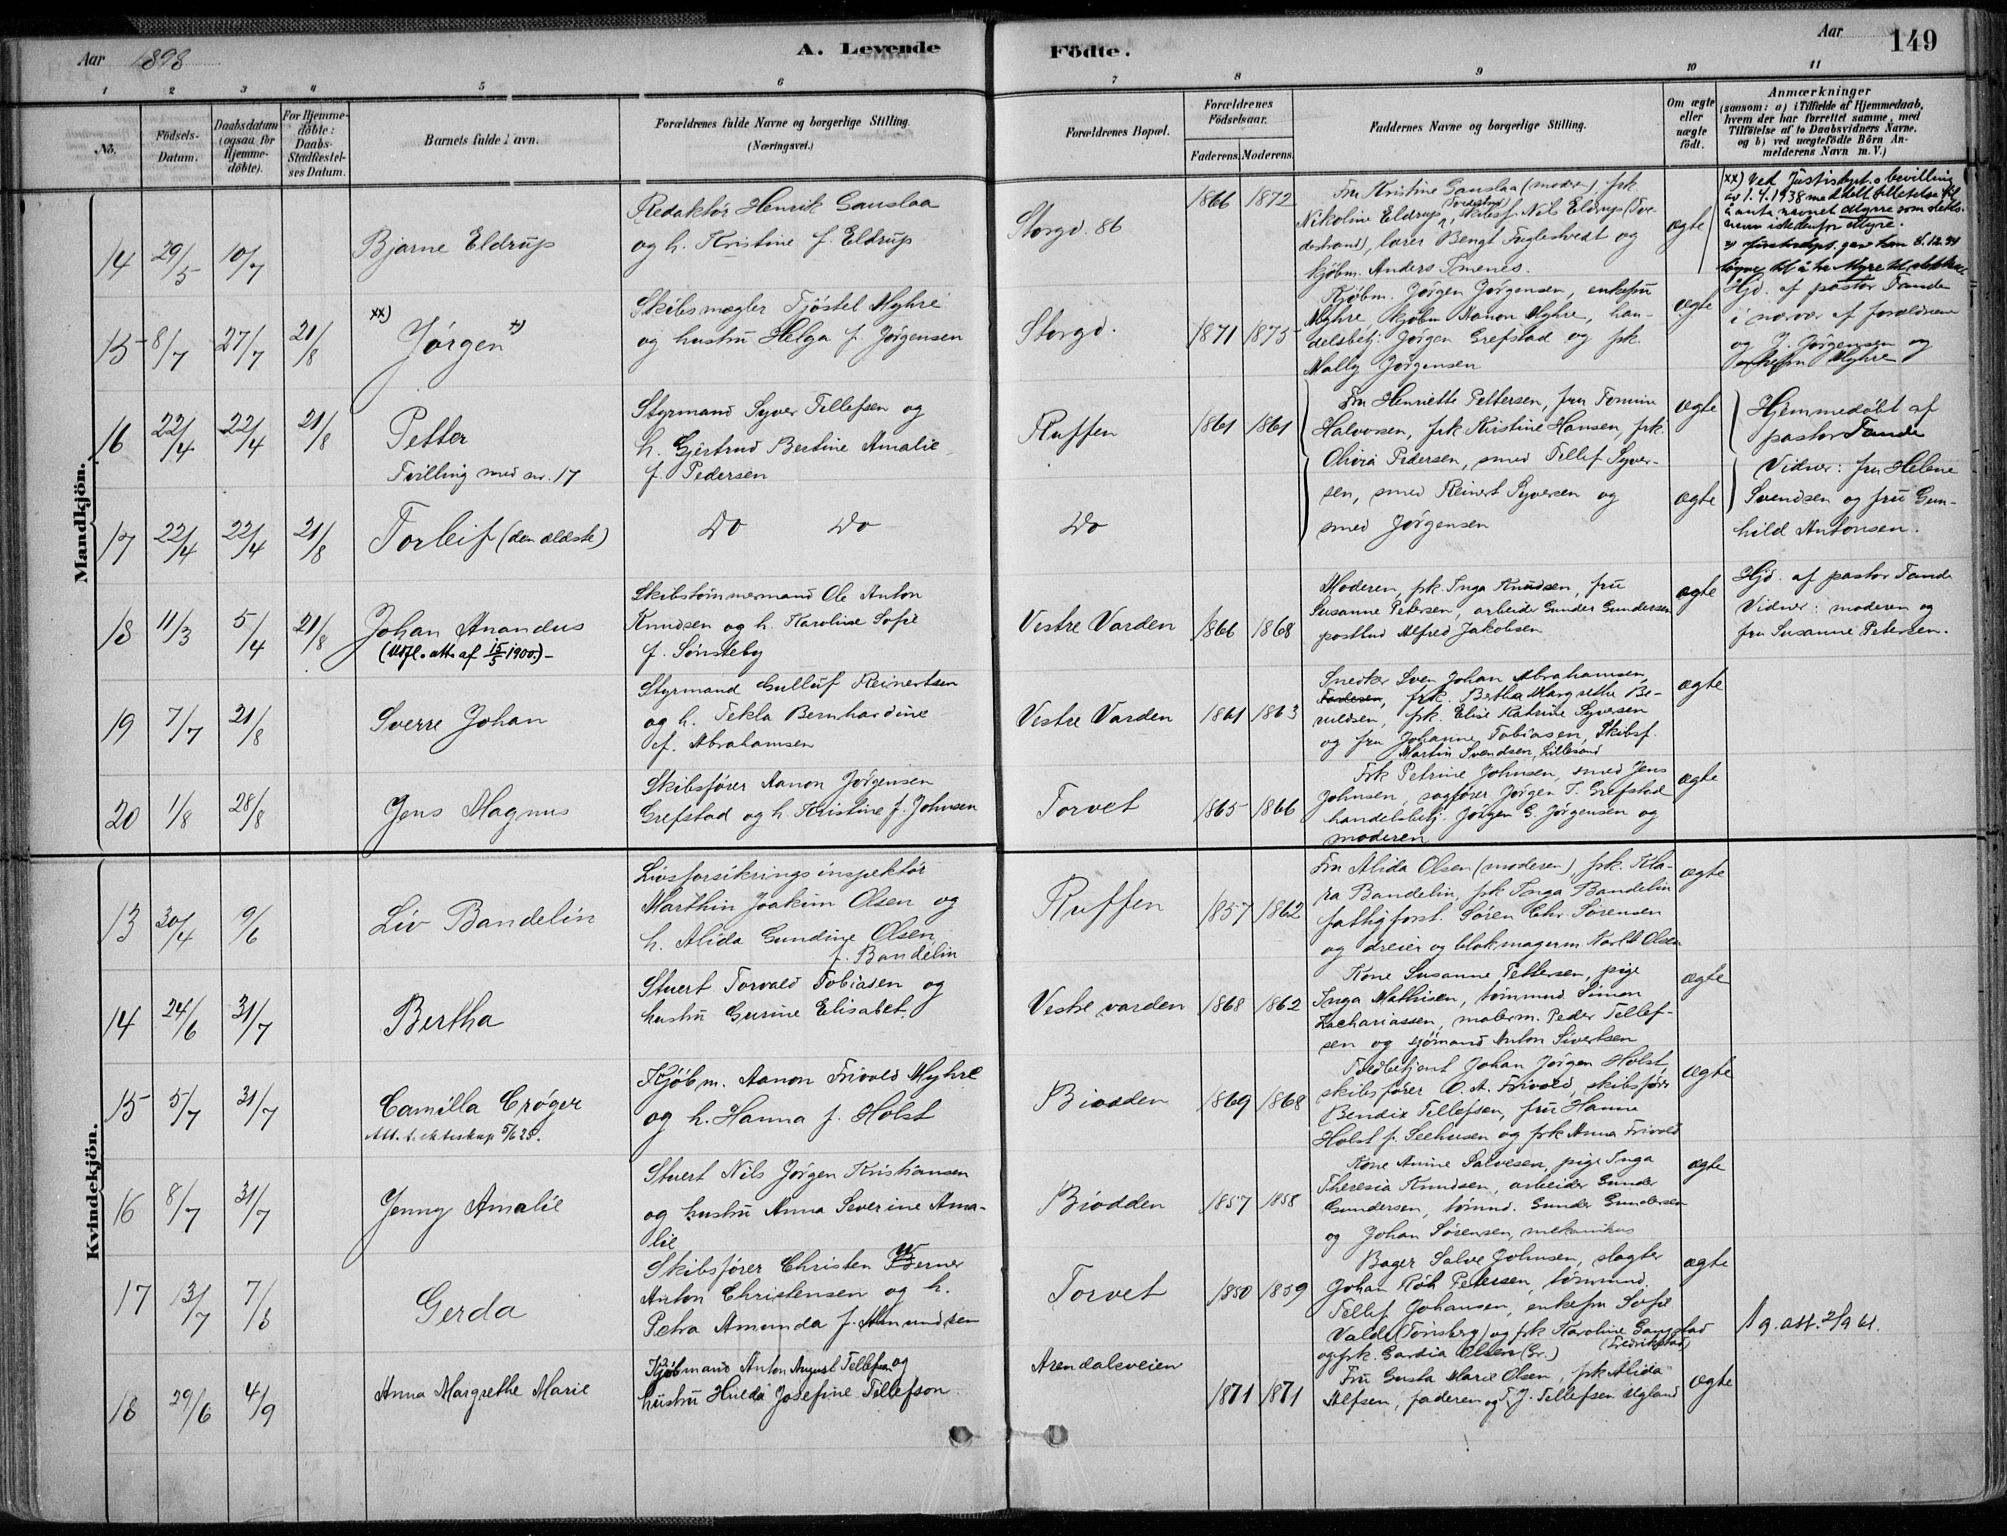 Aar 1898
A. Levende
Födte.
Aar
149
1 2 3 4 5 6 7 8 9 10 11
No.
Födsels-
Datum.
Daabsdatum
(ogsaa för
Hjemme-
döbte).
For Hjemme-
döbte:
Daabs-
Stadfæstel-
ses Datum.
Barnets fulde Navn.
Forældrenes fulde Navne og borgerlige Stilling.
(Næringsvei.)
Forældrenes Bopæl.
Forældrenes
Födselsaar.
Faderens.
Moderens.
Faddernes Navne og borgerlige Stilling.
Om ægte
eller
uægte
födt.
Anmærkninger
(saasom: a) i Tilfælde af Hjemmedaab,
hvem der har forrettet samme, med
Tilföielse af to Daabsvidners Navne.
og b) ved uægtefödte Börn An-
melderens Navn m. V.)
Mandkjön.
14 29/5 10/7
Bjarne Eldrup
Redaktør Henrik Gauslaa
og h. Kristine f. Eldrup
Storgd. 86
1866 1872
Fru Kristine Gauslaa (moderen), frk.
Nikoline Eldrup, Tvedestrand, Skibsf. Nils Eldrup (Tve-
destrand), lærer Bengt Fuglestvedt og
kjøbm. Anders Smenes.
ægte
xx) Ved Justisdept.s bevilling
av 1.4.1938 meddelt tillatelse til
å anta navnet Myrre som slekts-
navn istedenfor Myre.
15 8/7 27/7 21/8
xx) Jørgen x)
Skibsmægler Tjöstel Myhre
og hustru Helga f. Jørgensen
Storgd.
1871 1875
Kjøbm. Jørgen Jørgensen, enkefru
Myhre, kjøbm Aanon Myhre, han-
delsbetj. Jørgen Grefstad og frk.
Mally Jørgensen
ægte
Hjd. af pastor Tande
i nærvær af forældrene
og J. Jørgensen og
enkefru Myhre
16 22/4 22/4 21/8
Petter
Tvilling med nr. 17
Styrmand Syver Tellefsen og
h. Gjertrud Bertine Amalie
f. Pedersen
Ruffen
1861 1861
Fru Henriette Pettersen, fru Tomine
Halvorsen, frk Kirstine Hansen, frk.
Olivia Pedersen, smed Tellef Syver-
sen, smed Reinert Syversen og
smed Jørgensen
ægte
Hjemmedøbt af
pastor Tande
Vidner: fru Helene
Svendsen og fru Gun-
hild Antonsen.
17 22/4 22/4 21/8
Torleif (den ældste)
Do Do
Do
ægte
18 11/3 5/4 21/8
Johan Anandus
(Udfl. att. af 15/5 1900.)-
Skibstømmermand Ole Anton
Knudsen og h. Karoline Sofie
f. Sønsteby
Vestre Varden
1866 1868
Moderen, frk. Inga Knudsen, fru
Susanne Petersen, arbeider Gunder Gundersen
postbud Alfred Jakobsen
ægte
Hjd. af pastor Tande
Vidner: moderen og
fru Susanne Petersen.
19 7/7 21/8
Sverre Johan
Styrmand Gulluf Reinertsen
og h. Tekla Bernhardine
f. Abrahamsen
Vestre Varden
1861 1863
Snedker Sven Johan Abrahamsen,
frk. Bertha Margrethe Be-
ruldsen, frk. Elise Katrine Syversen
og fru Johanne Tobiasen, Skibsf.
Martin Svendsen, Lillesand
ægte
20 1/8 28/8
Jens Magnus
Skibsfører Aanon Jørgensen
Grefstad og h. Kristine f. Johnsen
Torvet
1865 1866
Frk Petrine Johnsen, smed Jens
Johnsen, sagfører Jørgen T. Grefstad
handelsbetj. Jørgen G. Jørgensen og
moderen
ægte
Kvindekjön.
13 30/4 9/6
Liv Bandelin
Livsforsikringsinspektør
Marthin Joakim Olsen og
h. Alida Gundine Olsen
f. Bandelin
Ruffen
1857 1862
Fru Alida Olsen (moderen), frk. Kla-
ra Bandelin, frk Inga Bandelin
fattigforst. Søren Chr. Sørensen
og dreier og blokmagerm Karl M Olsen
ægte
14 24/6 31/7
Bertha
Stuert Torvald Tobiasen og
hustru Gurine Elisabet.
Vestre varden
1868 1862
Kone Susanne Pettersen, pige
Inga Mathisen, tømmd. Simon
Zachariassen, malerm. Peder Tellef-
sen og sjømand Anton Sivertsen
ægte
15 5/7 31/7
Camilla Crøger
Att. t. ekteskap 5/6 25.
Kjøbm. Aanon Frivold Myhre
og h. Hanna f. Holst
Biodden
1869 1868
Toldbetjent Johan Jørgen Holst,
skibsfører O. A. Frivold, skibsfører
Bendix Tellefsen, fru Hanne
Holst f. Seehusen og frk Anna Frivold
ægte
16 8/7 31/7
Jenny Amalie
Stuert Nils Jørgen Kristiansen
og hustru Anna Severine Ama-
lie
Biodden
1857 1858
Kone Anine Salvesen, pige Inga
Theresia Knudsen, arbeider Gunder
Gundersen, tømmd. Gunder Gundersen
og Johan Sørensen, mekanikus
ægte
17 13/7 7/8
Gerda
Skibsfører Christen Werner
Anton Christensen og h.
Petra Amunda f. Amundsen
Torvet
1850 1859
Bager Salve Johnsen, slagter
Johan Røh Petersen, tømmmd.
Tellef Johansen, enkefru Sofie
Valdi (Tønsberg) og frk Karoline Gangstad
(Fredrikstad)
og frk. Gardia Olsen (Gr.)
ægte
Ug. att. 2/9 61.
18 29/6 4/9
Anna Margrethe Marie
Kjøbmand Anton August Tellefsen og
hustru Hulda Josefine Tellefson
Arendalsveien
1871 1871
Fru Gusta Marie Olsen, frk Alida
Alfsen, faderen og T. J. Tellefsen Ugland
ægte